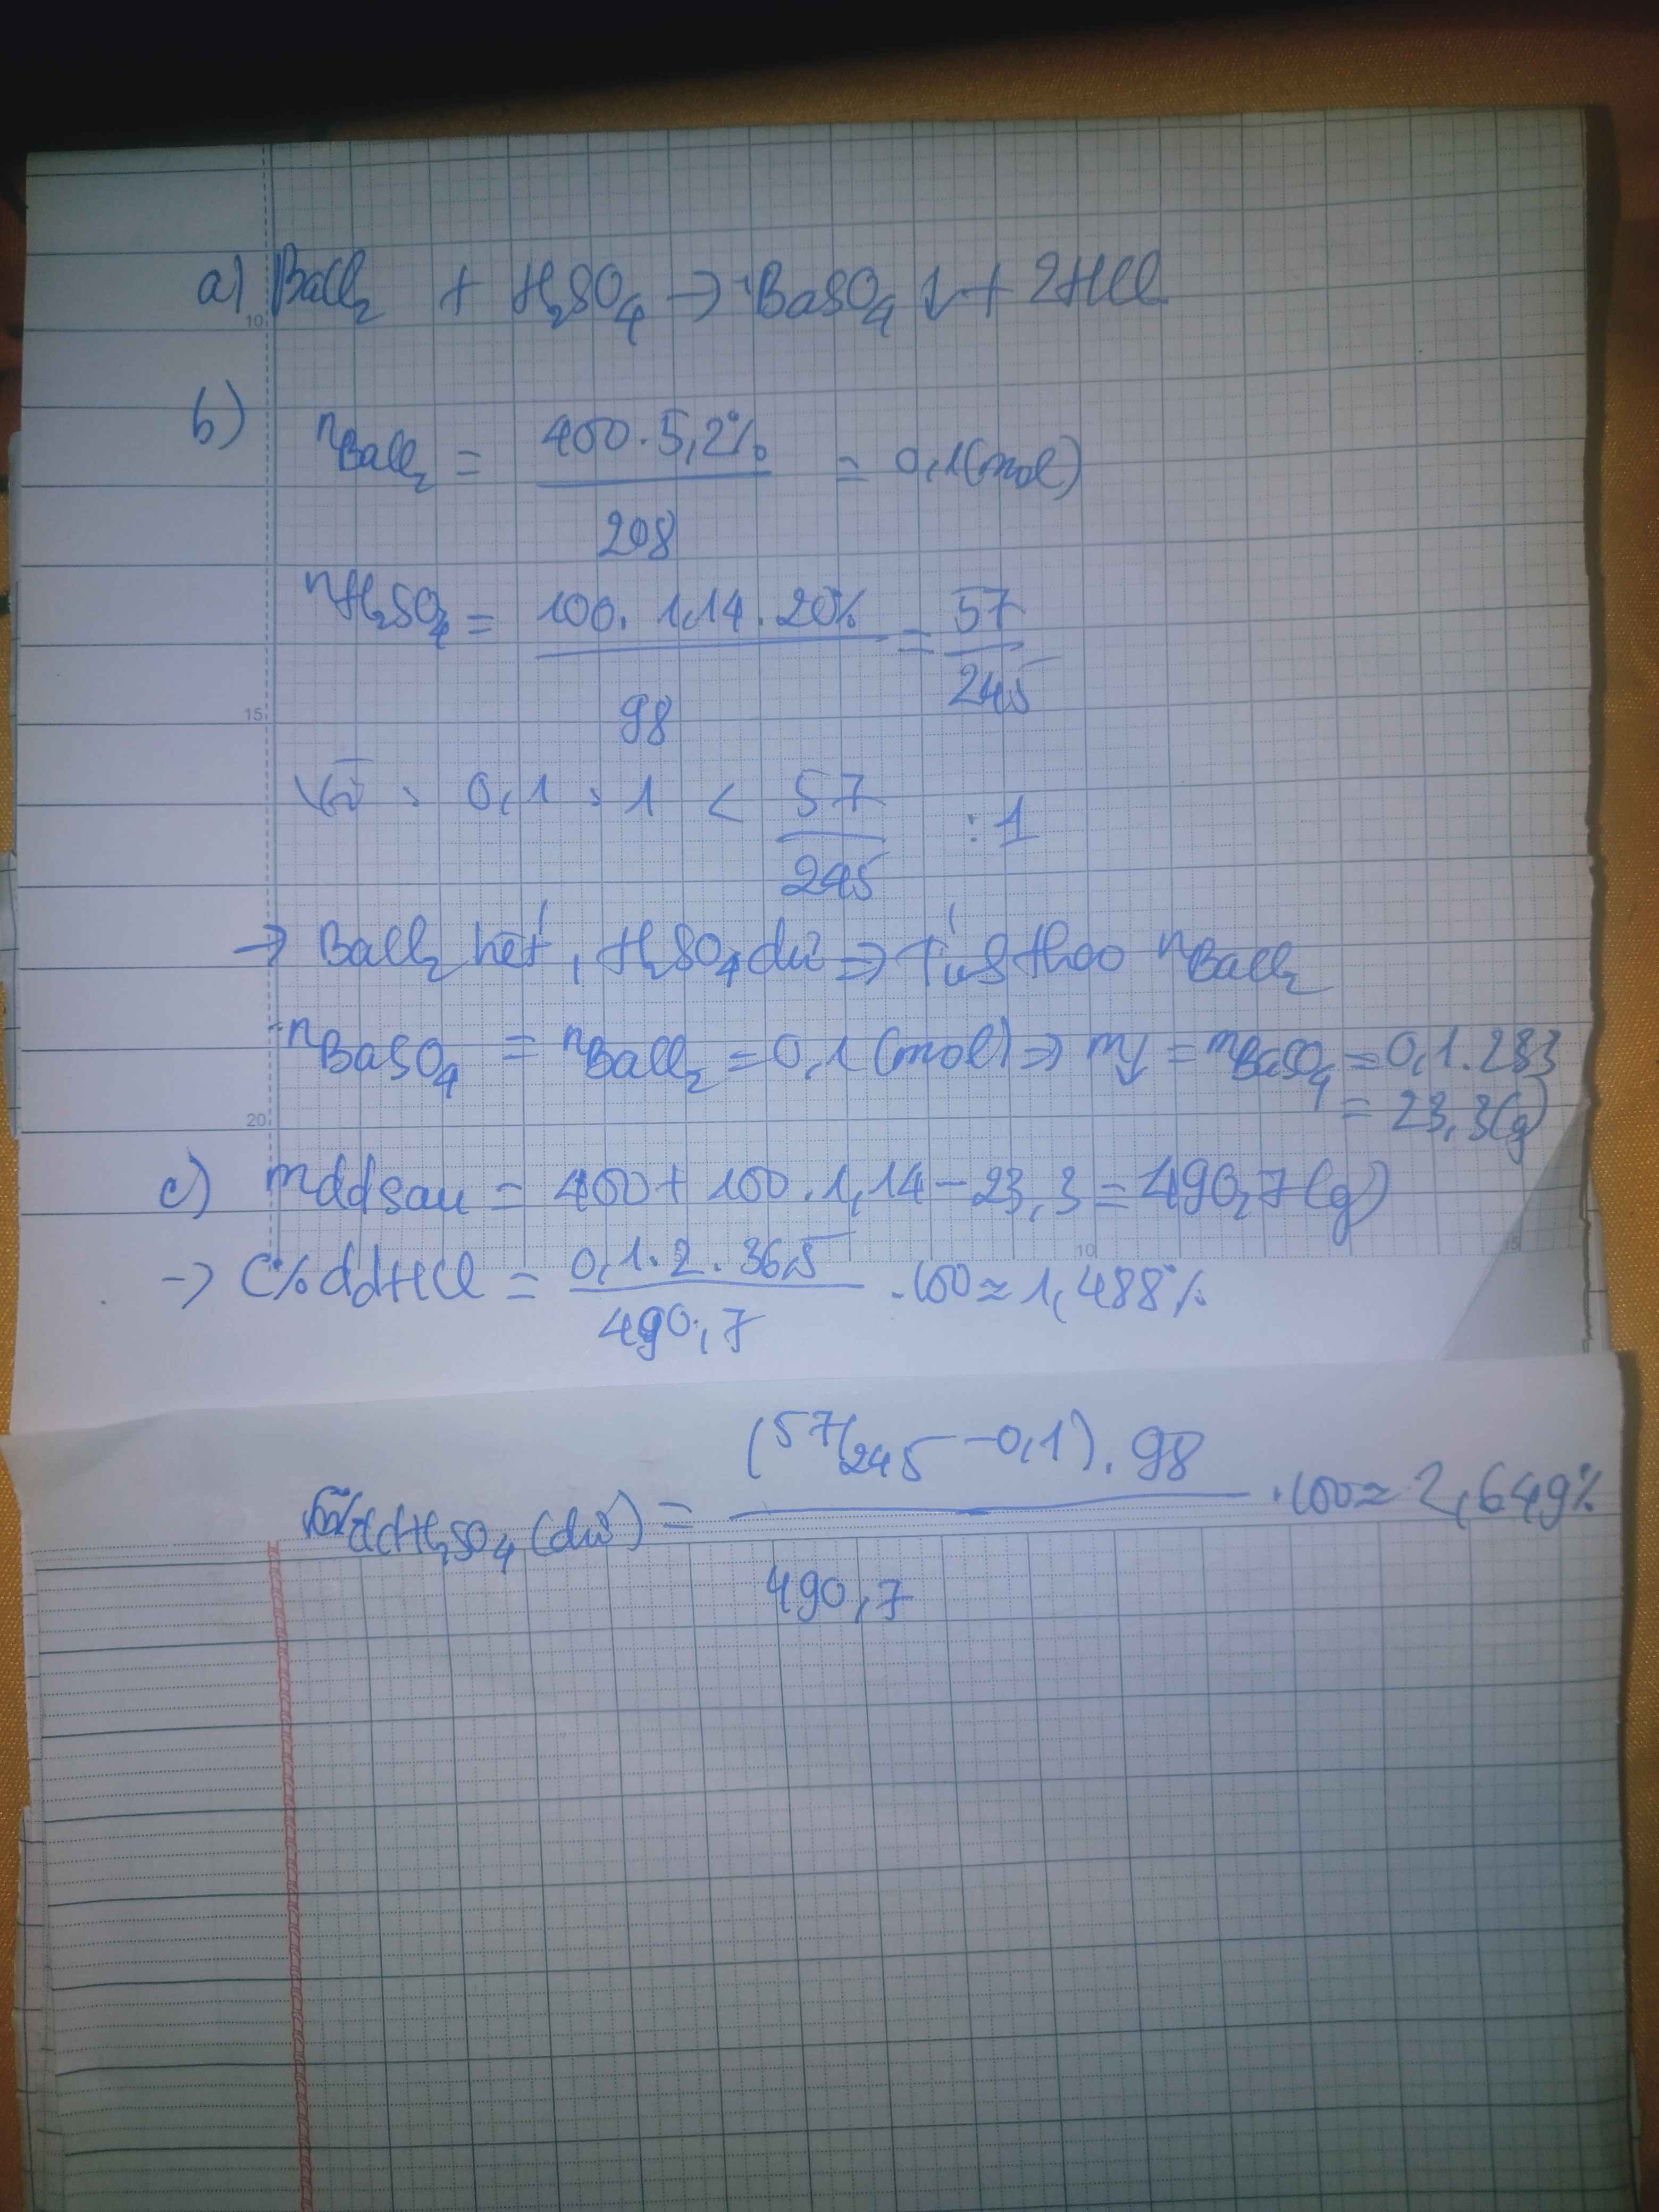 a) BaCl₂ + H₂SO₄ → BaSO₄ ↓ + 2HCl
10
b) nBaCl₂ = 400.5,2% / 208 = 0,1(mol)
nH₂SO₄ = 100.1,14.20% / 98 = 57/245
15
Vì: 0,1 : 1 < 57/245 : 1
→ BaCl₂ hết, H₂SO₄ dư ⇒ Tính theo nBaCl₂
nBaSO₄ = nBaCl₂ = 0,1(mol) ⇒ m↓ = mBaSO₄ = 0,1.233
= 23,3(g)
20
c) mddsau = 400 + 100.1,14 - 23,3 = 490,7(g)
10
15
→ C%ddHCl = 0,1.2.36,5 / 490,7 .100 ≈ 1,488%
C%ddH₂SO₄(dư) = (57/245 - 0,1).98 / 490,7 .100 ≈ 2,649%